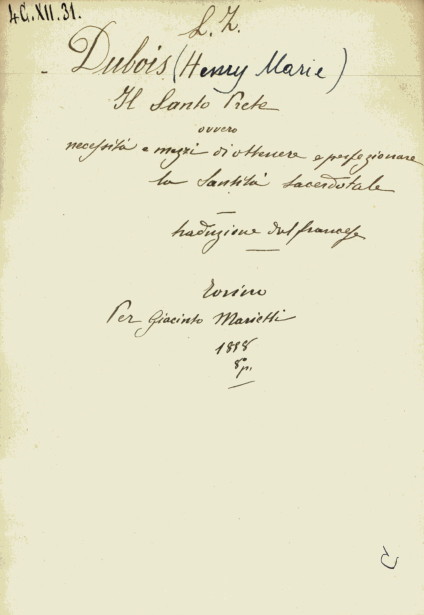 4C.XII.31.
L. Z.
Dubois (Henry Marie)
Il Santo Prete
ovvero
necessità e mezzi di ottenere e perfezionare
la Santità sacerdotale
traduzione dal francese
Torino
Per Giacinto Marietti